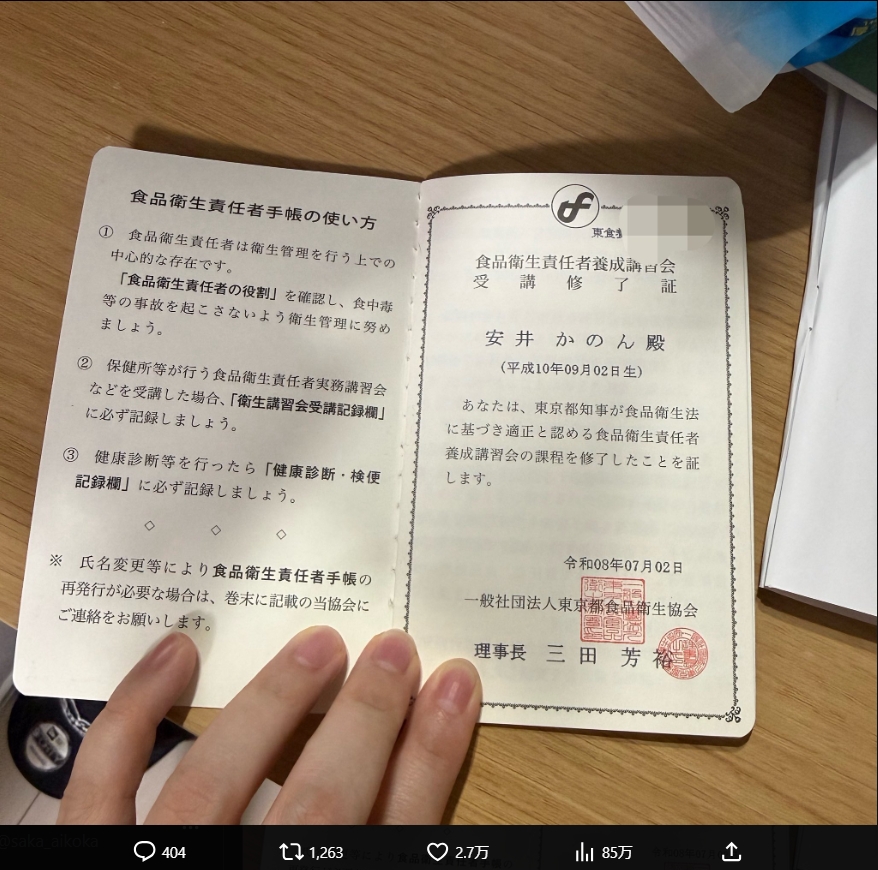 食品衛生責任者手帳の使い方
① 食品衛生責任者は衛生管理を行う上での
中心的な存在です。
「食品衛生責任者の役割」を確認し、食中毒
等の事故を起こさないよう衛生管理に努め
ましょう。
② 保健所等が行う食品衛生責任者実務講習会
などを受講した場合、「衛生講習会受講記録欄」
に必ず記録しましょう。
③ 健康診断等を行ったら「健康診断・検便
記録欄」に必ず記録しましょう。
◇ ◇ ◇
※ 氏名変更等により食品衛生責任者手帳の
再発行が必要な場合は、巻末に記載の当協会に
ご連絡をお願いします。
東食
食品衛生責任者養成講習会
受講修了証
安井 かのん 殿
(平成10年09月02日生)
あなたは、東京都知事が食品衛生法
に基づき適正と認める食品衛生責任者
養成講習会の課程を修了したことを証
します。
令和08年07月02日
一般社団法人東京都食品衛生協会
理事長 三田 芳裕
@saka_aikoka
404 1,263 2.7万 85万